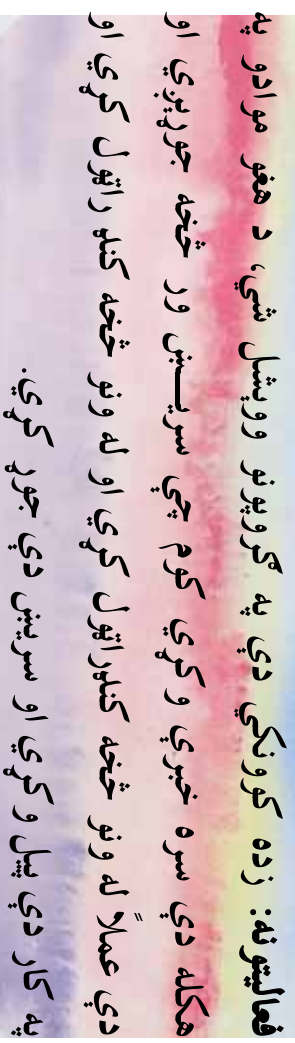 فعاليتونه: زده کوونکي دې په ګروپونو ووېشل شي، د هغو موادو په
هکله دې سره خبرې وکړي کوم چې سريــښ ور څخه جوړېږي او
دې عملاً له ونو څخه کنډراټول کړي او له ونو څخه کنډ راټول کړي او
په کار دې پيل وکړي او سريښ دې جوړ کړي.